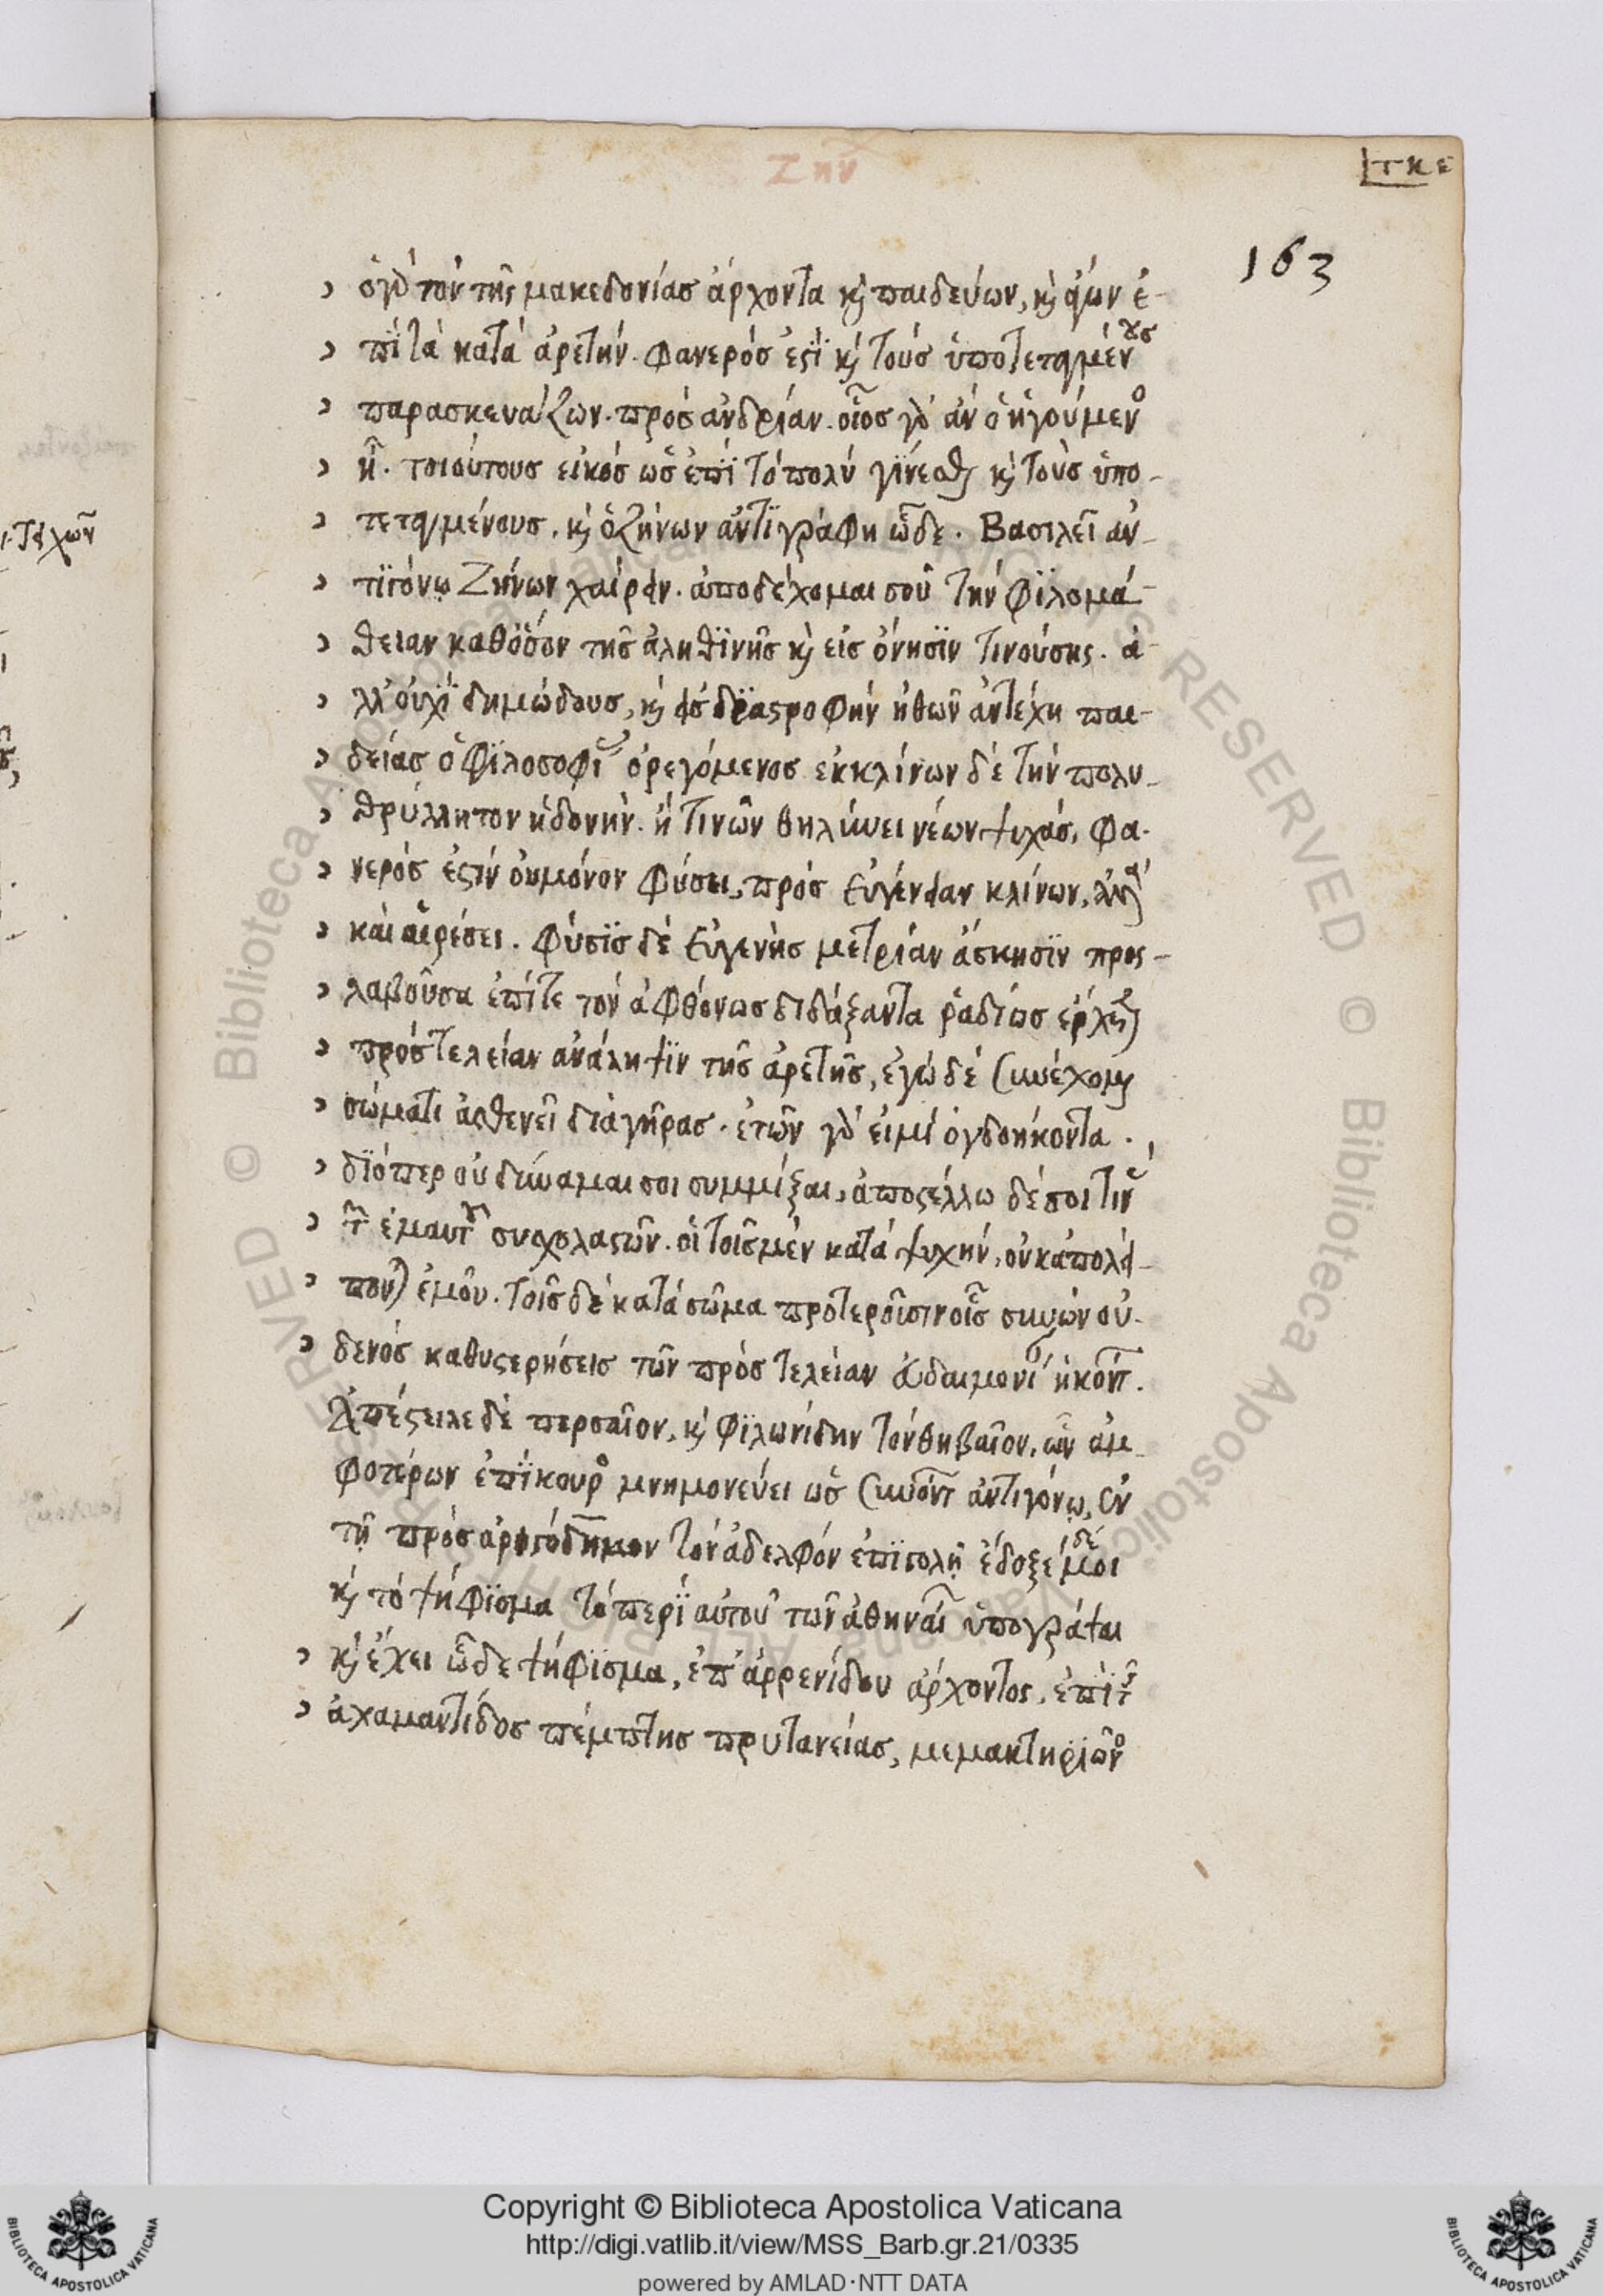 Ζην
τκε
163
ὁ γὰρ τὸν τῆς μακεδονίας ἄρχοντα καὶ παιδεύων, καὶ ἄγων ἐ-
πὶ τὰ κατὰ ἀρετήν. φανερός ἐστι καὶ τοὺς ὑποτεταγμένους
παρασκευάζων. πρὸς ἀνδρίαν. οἷος γὰρ ἂν ὁ ἡγούμενος
ᾖ. τοιούτους εἰκὸς ὡς ἐπὶ τὸ πολὺ γίνεσθαι καὶ τοὺς ὑπο-
τεταγμένους. καὶ ὁ ζήνων ἀντιγράφη ὧδε. Βασιλεῖ ἀν-
τιγόνῳ Ζήνων χαίρειν. ἀποδέχομαι σοῦ τὴν φιλομά-
θειαν καθόσον τῆς ἀληθινῆς καὶ εἰς ὄνησιν τινούσης. ἀ-
λλ' οὐχὶ δημώδους, καὶ εἰς διαστροφὴν ἠθῶν ἀντέχη παι-
δείας ὁ φιλοσοφίας ὀρεγόμενος ἐκκλίνων δὲ τὴν πολυ-
θρύλλητον ἡδονήν. ἥ τινῶν θηλύνει νέων ψυχάς, φα-
νερός ἐστιν οὐ μόνον φύσει, πρὸς εὐγένειαν κλίνων, ἀλλὰ
καὶ αἱρέσει. φύσις δὲ εὐγενὴς μετρίαν ἄσκησιν προς-
λαβοῦσα ἐπί τε τὸν ἀφθόνως διδάξαντα ῥαδίως ἔρχεται
πρὸς τελείαν ἀνάληψιν τῆς ἀρετῆς, ἐγὼ δὲ συνέχομαι
σώματι ἀσθενεῖ διὰ γῆρας. ἐτῶν γὰρ εἰμὶ ὀγδοήκοντα.
διόπερ οὐ δύναμαι σοι συμμίξαι, ἀποστέλλω δέ σοι τινὰς
τῶν ἐμαυτοῦ συσχολαστῶν. οἳ τοῖς μὲν κατὰ ψυχὴν, οὐκ ἀπολεί-
πονται ἐμοῦ. τοῖς δὲ κατὰ σῶμα προτεροῦσιν οἷς συνὼν οὐ-
δενὸς καθυστερήσεις τῶν πρὸς τελείαν εὐδαιμονίαν ἡκόντων.
Ἀπέστειλε δὲ περσαῖον, καὶ φιλωνίδην τὸν θηβαῖον, ὧν ἀμ-
φοτέρων ἐπίκουρος μνημονεύει ὡς συνόντων ἀντιγόνῳ, ἐν
τῇ πρὸς ἀριστόδημον τὸν ἀδελφὸν ἐπιστολῇ ἔδοξε δέ μοι
καὶ τὸ ψήφισμα τὸ περὶ αὐτοῦ τῶν ἀθηναίων ὑπογράψαι
καὶ ἔχει ὧδε ψήφισμα, ἐπ' ἀρρενίδου ἄρχοντος, ἐπὶ τῆς
ἀχαμαντίδος πέμπτης πρυτανείας, μεμακτηριῶνος
Copyright © Biblioteca Apostolica Vaticana
http://digi.vatlib.it/view/MSS_Barb.gr.21/0335
powered by AMLAD·NTT DATA